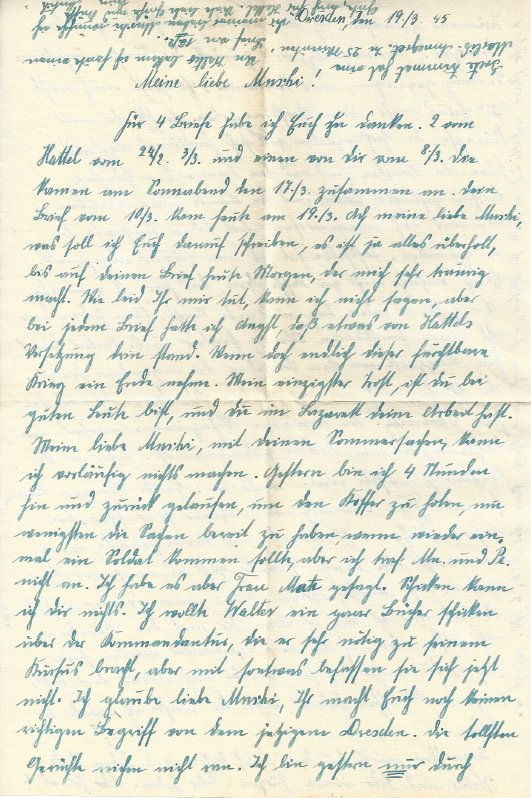 Dresden, den 19./3. 45
Meine liebe Muschi!
Für 4 Briefe habe ich Euch zu danken. 2 vom
Hattel vom 24/2. 3/3. und einen von Dir vom 8/3. Die
kamen am Sonnabend den 17./3. zusammen an. Dein
Brief vom 10/3. kam heute am 19./3. Ach meine liebe Muschi,
was soll ich Euch darauf schreiben, es ist ja alles überholt,
bis auf deinen Brief heute Morgen, der mich sehr traurig
macht. Wie leid Ihr mir tut, kann ich nicht sagen, aber
bei jedem Brief hatte ich Angst, daß etwas von Hattels
Versetzung drin stand. Wenn doch endlich dieser furchtbare
Krieg ein Ende nehm. Mein einzigster Trost, ist du bei
guten Leute bist, und du im Lazarett deine Arbeit hast.
Meine liebe Muschi, mit deinen Sommersachen, kann
ich vorläufig nichts machen. Gestern bin ich 4 Stunden
hin und zurück gelaufen, um den Koffer zu holen, um
wenigsten die Sachen bereit zu haben, wenn wieder ein-
mal ein Soldat kommen sollte, aber ich traf Mu. und Pe.
nicht an. Ich habe es aber Frau Matz gesagt. Schicken kann
ich dir nichts. Ich wollte Walter ein paar Bücher schicken
über die Kommandantur, die er sehr nötig zu seinem
Kursus braucht, aber mit soetwas befassen sie sich jetzt
nicht. Ich glaube liebe Muschi, Ihr macht Euch noch keinen
richtigen Begriff von dem jetzigene Dresden. Die tollsten
Gerüchte reichen nicht ran. Ich bin gestern nur durch